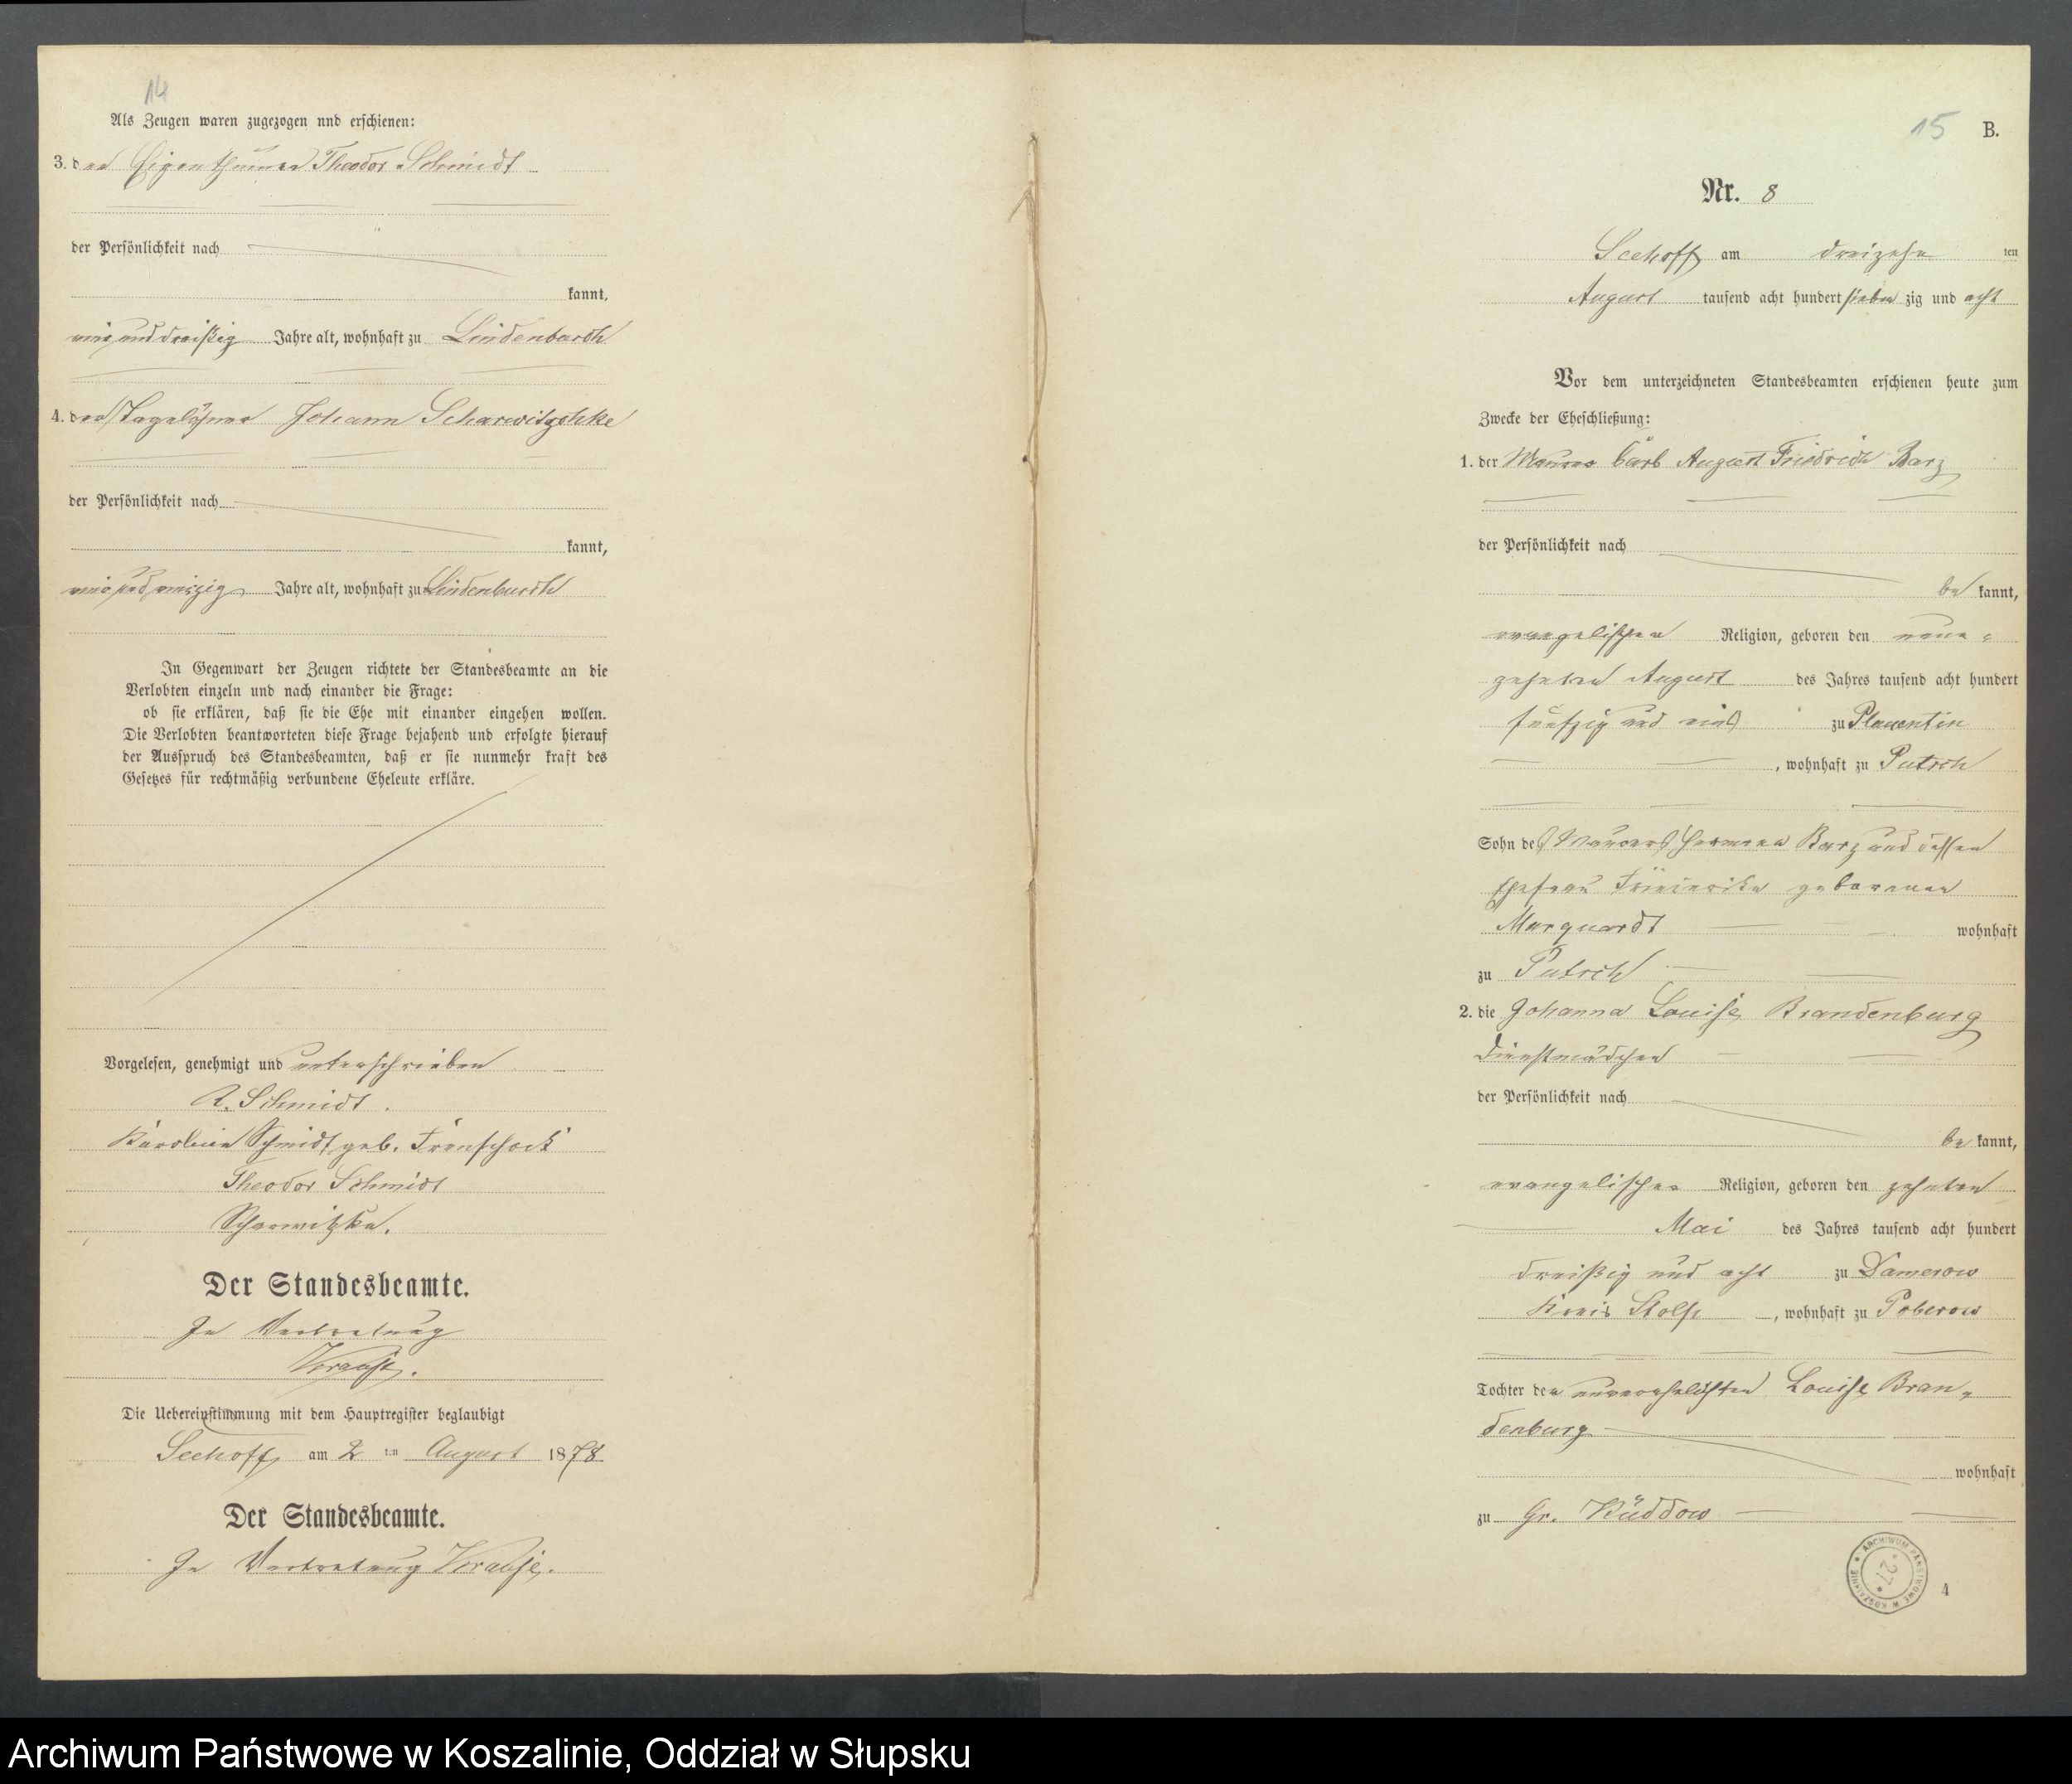 14
Als Zeugen waren zugezogen nnd erschienen:
3. der Eigenthümer Theodor Schmidt
der Persönlichkeit nach
kannt,
und dreißig Jahre alt, wohnhaft zu Lindenbusch
4. der Tagelöhner Johann Scharwitzschke
der Persönlichkeit nach
kannt,
und vierzig Jahre alt, wohnhaft zu Lindenbusch
In Gegenwart der Zeugen richtete der Standesbeamte an die
Verlobten einzeln und nach einander die Frage:
ob sie erklären, daß sie die Ehe mit einander eingehen wollen.
Die Verlobten beantworteten diese Frage bejahend und erfolgte hierauf
der Ausspruch des Standesbeamten, daß er sie nunmehr kraft des
Gesetzes für rechtmäßig verbundene Eheleute erkläre.
Vorgelesen, genehmigt und unterschrieben
A. Schmidt.
Karoline Schmidt geb.
Theodor Schmidt
Scharwitzke.
Der Standesbeamte.
In Vertretung
Krause.
Die Uebereinstimmung mit dem Hauptregister beglaubigt
Seehoff am 2 ten August 1878
Der Standesbeamte.
In Vertretung Krause.
15 B.
Nr. 8
Seehoff am dreizehn ten
August tausend acht hundert sieben zig und acht
Vor dem unterzeichneten Standesbeamten erschienen heute zum
Zwecke der Eheschließung:
1. der Maurer Carl August Friedrich Barz
der Persönlichkeit nach
be kannt,
evangelischer Religion, geboren den neun-
zehnten August des Jahres tausend acht hundert
fünfzig und eins zu Plauentin
, wohnhaft zu Putsch
Sohn des Maurers Herman Barz und dessen
Ehefrau Friederike geborenen
Marquardt wohnhaft
zu Putsch
2. die Johanna Louise Brandenburg
Dienstmädchen
der Persönlichkeit nach
be kannt,
evangelischer Religion, geboren den zehnten
Mai des Jahres tausend acht hundert
dreißig und acht zu Damerow
Kreis Stolp, wohnhaft zu Poberow
Tochter der unverehelichten Louise Bran-
denburg
wohnhaft
zu Gr. Küddow
ARCHIWUM PAŃSTWOWE W KOSZALINIE
27
4
Archiwum Państwowe w Koszalinie, Oddział w Słupsku